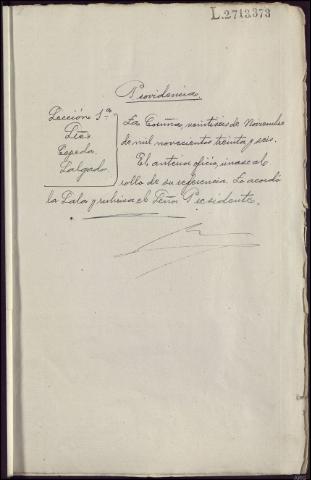 L.2713373
Providencia.
Sección 1ª
Cepeda
Salgado
La Coruña, veintiseis de Noviembre
de mil novecientos treinta y seis.
El anterior oficio, unase al
rollo de su referencia. Lo acordó
la Sala y rubrica el Señor Presidente.